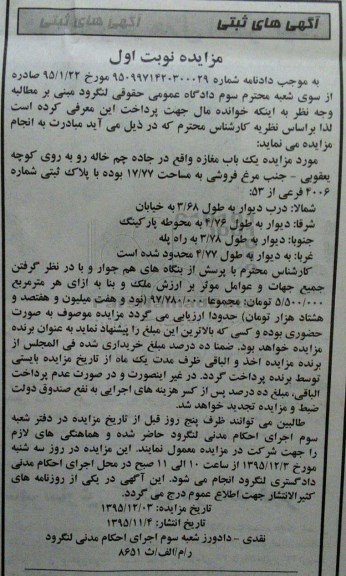 آگهی های ثبتی
آگهی های ثبتی
مزایده نوبت اول
به موجب دادنامه شماره ۹۵۰۹۹۷۱۴۲۰۳۰۰۰۲۹ مورخ ۹۵/۱/۲۲ صادره
از سوی شعبه محترم سوم دادگاه عمومی حقوقی لنگرود مبنی بر مطالبه
وجه نظر به اینکه خوانده مال جهت پرداخت این معرفی کرده است
لذا براساس نظریه کارشناس محترم که در ذیل می آید مبادرت به انجام
مزایده می نماید:
مورد مزایده یک باب مغازه واقع در جاده چم خاله رو به روی کوچه
یعقوبی - جنب مرغ فروشی به مساحت ۱۷/۷۷ بوده با پلاک ثبتی شماره
۴۰۰۶ فرعی از ۵۳:
شمالا: درب دیوار به طول ۳/۶۸ به خیابان
شرقا: دیوار به طول ۴/۷۶ به محوطه پارکینگ
جنوبا: دیوار به طول ۳/۷۸ به راه پله
غربا: به دیوار به طول ۴/۷۷ محدود شده است
کارشناس محترم با پرسش از بنگاه های هم جوار و با در نظر گرفتن
جمیع جهات و عوامل موثر بر ارزش ملک و بنا به ازای هر مترمربع
۵/۵۰۰/۰۰۰ تومان: مجموعا ۹۷/۷۸۰/۰۰۰ (نود و هفت میلیون و هفتصد و
هشتاد هزار تومان) حدودا ارزیابی می گردد مزایده موصوف به صورت
حضوری بوده و کسی که بالاترین این مبلغ را پیشنهاد نماید به عنوان برنده
مزایده خواهد بود. ضمنا ده درصد مبلغ خریداری شده فی المجلس از
برنده مزایده اخذ و الباقی ظرف مدت یک ماه از تاریخ مزایده بایستی
توسط برنده پرداخت گردد. در غیر اینصورت و در صورت عدم پرداخت
الباقی، مبلغ ده درصد پس از کسر هزینه های اجرایی به نفع صندوق دولت
ضبط و مزایده تجدید خواهد شد.
طالبین می توانند ظرف پنج روز قبل از تاریخ مزایده در دفتر شعبه
سوم اجرای احکام مدنی لنگرود حاضر شده و هماهنگی های لازم
را جهت شرکت در مزایده معمول نمایند. این مزایده در روز سه شنبه
مورخ ۱۳۹۵/۱۲/۳ از ساعت ۱۰ الی ۱۱ صبح در محل اجرای احکام مدنی
دادگستری لنگرود انجام می شود. این آگهی در یکی از روزنامه های
کثیرالانتشار جهت اطلاع عموم درج می گردد.
تاریخ مزایده: ۱۳۹۵/۱۲/۰۳
تاریخ انتشار: ۱۳۹۵/۱۱/۴
نقدی - دادورز شعبه سوم اجرای احکام مدنی لنگرود
ر/م/الف/ث ۸۶۵۱